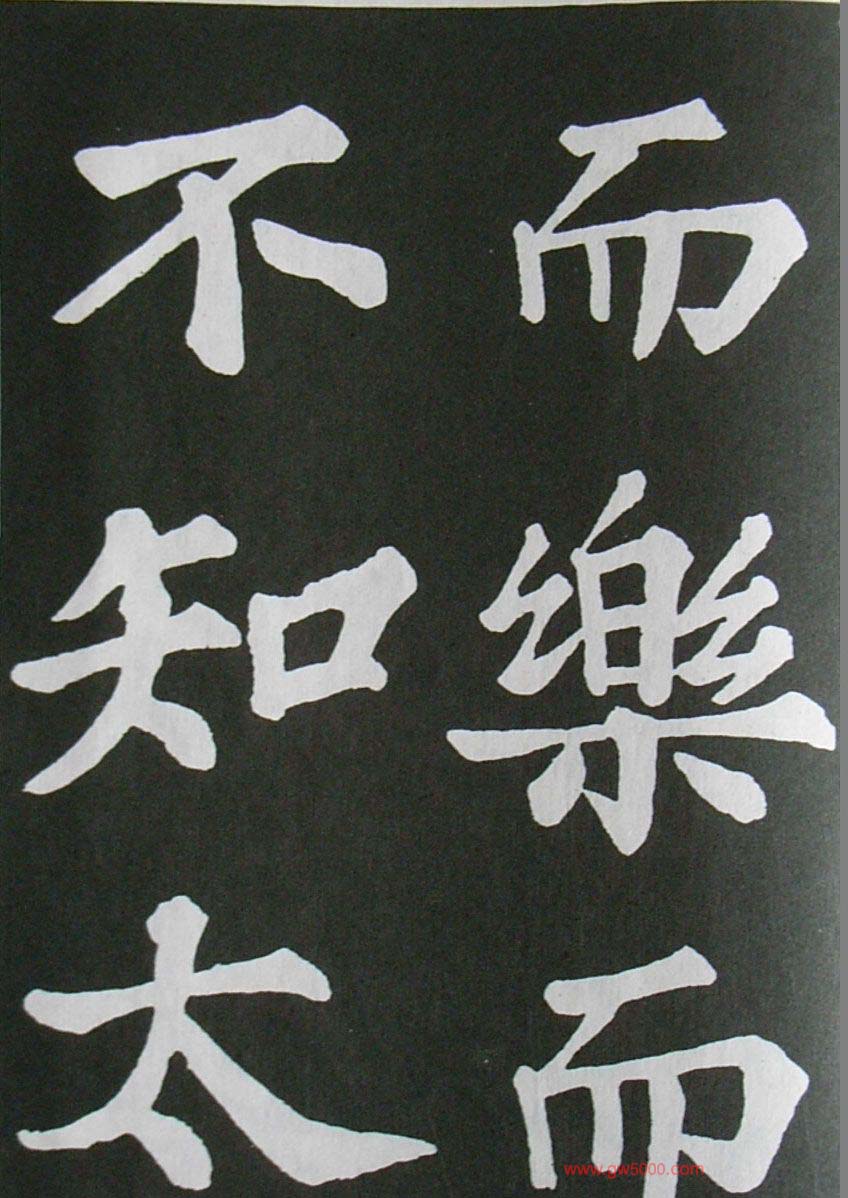 而樂而
不知太
www.gw5000.com